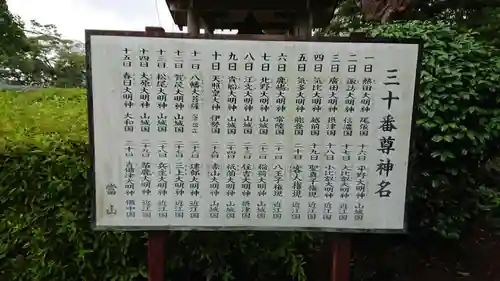 三十番尊神名
一日 熱田大明神 尾張国 十六日 平野大明神 山城国
二日 諏訪大明神 信濃国 十七日 大比叡大明神 近江国
三日 廣田大明神 摂津国 十八日 小比叡大明神 近江国
四日 気比大明神 越前国 十九日 聖真子権現 近江国
五日 気多大明神 能登国 二十日 客人権現 近江国
六日 鹿嶋大明神 常陸国 二十一日 八王子権現 近江国
七日 北野大明神 山城国 二十二日 稲荷大明神 山城国
八日 江文大明神 山城国 二十三日 住吉大明神 摂津国
九日 貴船大明神 山城国 二十四日 祇園大明神 山城国
十日 天照皇大神 伊勢国 二十五日 赤山大明神 山城国
十一日 八幡大菩薩 二十六日 建部大明神 近江国
十二日 賀茂大明神 山城国 二十七日 三上大明神 近江国
十三日 松尾大明神 山城国 二十八日 兵主大明神 近江国
十四日 大原大明神 山城国 二十九日 苗鹿大明神 近江国
十五日 春日大明神 大和国 三十日 吉備大明神 備中国
當山